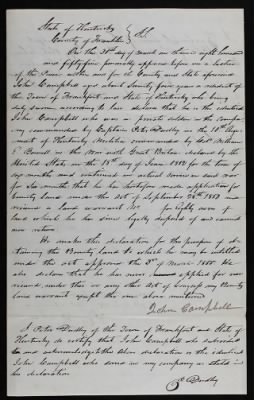 State of Kentucky
County of Franklin } Sct.
On this 30th day of March one thousand eight hundred
and fifty five personally appeared before me a Justice
of the Peace within and for the County and State aforesaid
John Campbell aged about Seventy four years a resident of
the Town of Frankfort and State of Kentucky who being
duly sworn according to law declares that he is the identical
John Campbell who was a private soldier in the company
commanded by Captain Peter Dudley in the
of Kentucky Militia commanded by
in the War with Great Britain declared by the
United States on the 18th day of June 1812 for the term of
months and continued in actual service in said war
for six months that he has heretofore made application for
bounty land under the act of September 28th 1850 and
received a land warrant No for eighty acres of
land which he has since legally disposed of and cannot
now return
He makes this declaration for the purpose of ob-
taining the Bounty Land to which he may be entitled
under the act approved the 3d of March 1855. He
also declares that he has never applied for nor
received under this or any other Act of Congress any Bounty
land warrant except the one above mentioned
John Campbell
I Peter Dudley of the Town of Frankfort and State of
Kentucky do certify that John Campbell who subscribed
to and acknowledged the above declaration is the identical
John Campbell who served in my company as stated in
his declaration
P Dudley